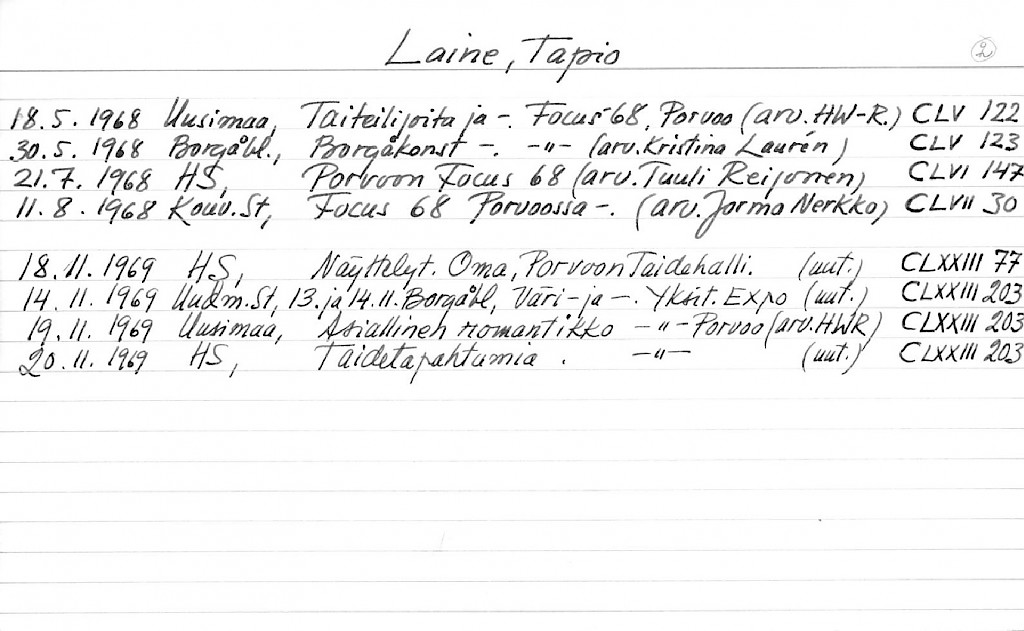 Laine, Tapio
2
18.5.1968 Uusimaa, Taiteilijoita ja -. Focus 68, Porvoo (arv. HW-R.) CLV 122
30.5.1968 Borgåbl., Borgåkonst -. -"- (arv. Kristina Laurén) CLV 123
21.7.1968 HS, Porvoon Focus 68 (arv. Tuuli Reijonen) CLVI 147
11.8.1968 Kouv.St, Focus 68 Porvoossa -. (arv. Jorma Nerkko) CLVII 30
18.11.1969 HS, Näyttelyt. Oma, Porvoon Taidehalli. (uut.) CLXXIII 77
14.11.1969 Uudm.St, 13. ja 14.11. Borgåbl, Väri- ja -. Yksit. Expo (uut.) CLXXIII 203
19.11.1969 Uusimaa, Asiallinen romantikko -"- Porvoo (arv. HWR) CLXXIII 203
20.11.1969 HS, Taidetapahtumia. -"- (uut.) CLXXIII 203